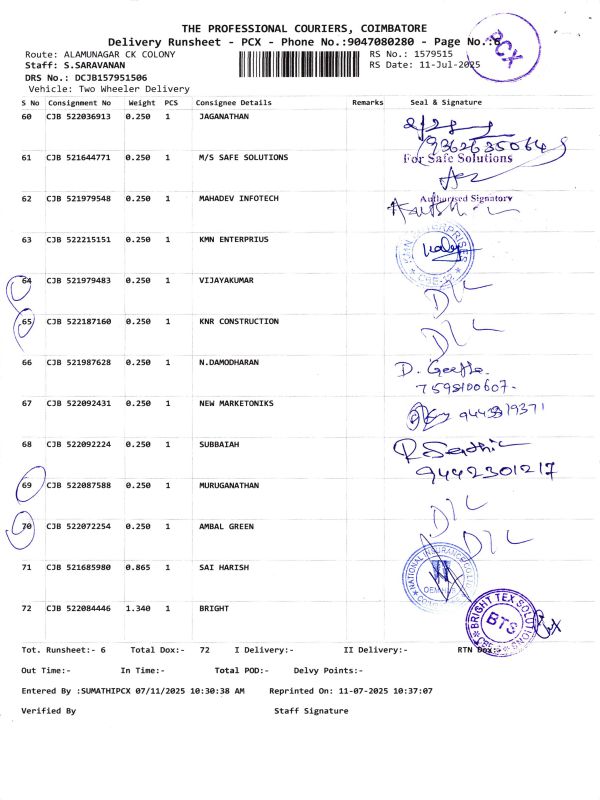 THE PROFESSIONAL COURIERS, COIMBATORE
Delivery Runsheet - PCX - Phone No.:9047080280 - Page No.:6
PCX
Route: ALAMUNAGAR CK COLONY RS No.: 1579515
Staff: S.SARAVANAN RS Date: 11-Jul-2025
DRS No.: DCJB157951506
Vehicle: Two Wheeler Delivery
S No Consignment No Weight PCS Consignee Details Remarks Seal & Signature
60 CJB 522036913 0.250 1 JAGANATHAN
9362635064
61 CJB 521644771 0.250 1 M/S SAFE SOLUTIONS For Safe Solutions
Authorised Signatory
62 CJB 521979548 0.250 1 MAHADEV INFOTECH
63 CJB 522215151 0.250 1 KMN ENTERPRIUS
KMN ENTERPRISES
64 CJB 521979483 0.250 1 VIJAYAKUMAR D/L
65 CJB 522187160 0.250 1 KNR CONSTRUCTION D/L
66 CJB 521987628 0.250 1 N.DAMODHARAN D. Geetha
7598100607.
67 CJB 522092431 0.250 1 NEW MARKETONIKS
68 CJB 522092224 0.250 1 SUBBAIAH
9442301217
69 CJB 522087588 0.250 1 MURUGANATHAN D/L
70 CJB 522072254 0.250 1 AMBAL GREEN D/L
71 CJB 521685980 0.865 1 SAI HARISH
NATIONAL INSURANCE CO. LTD.
72 CJB 522084446 1.340 1 BRIGHT
BRIGHT TEX SOLUTIONS
BTS
Tot. Runsheet:- 6 Total Dox:- 72 I Delivery:- II Delivery:- RTN Dox:-
Out Time:- In Time:- Total POD:- Delvy Points:-
Entered By :SUMATHIPCX 07/11/2025 10:30:38 AM Reprinted On: 11-07-2025 10:37:07
Verified By Staff Signature